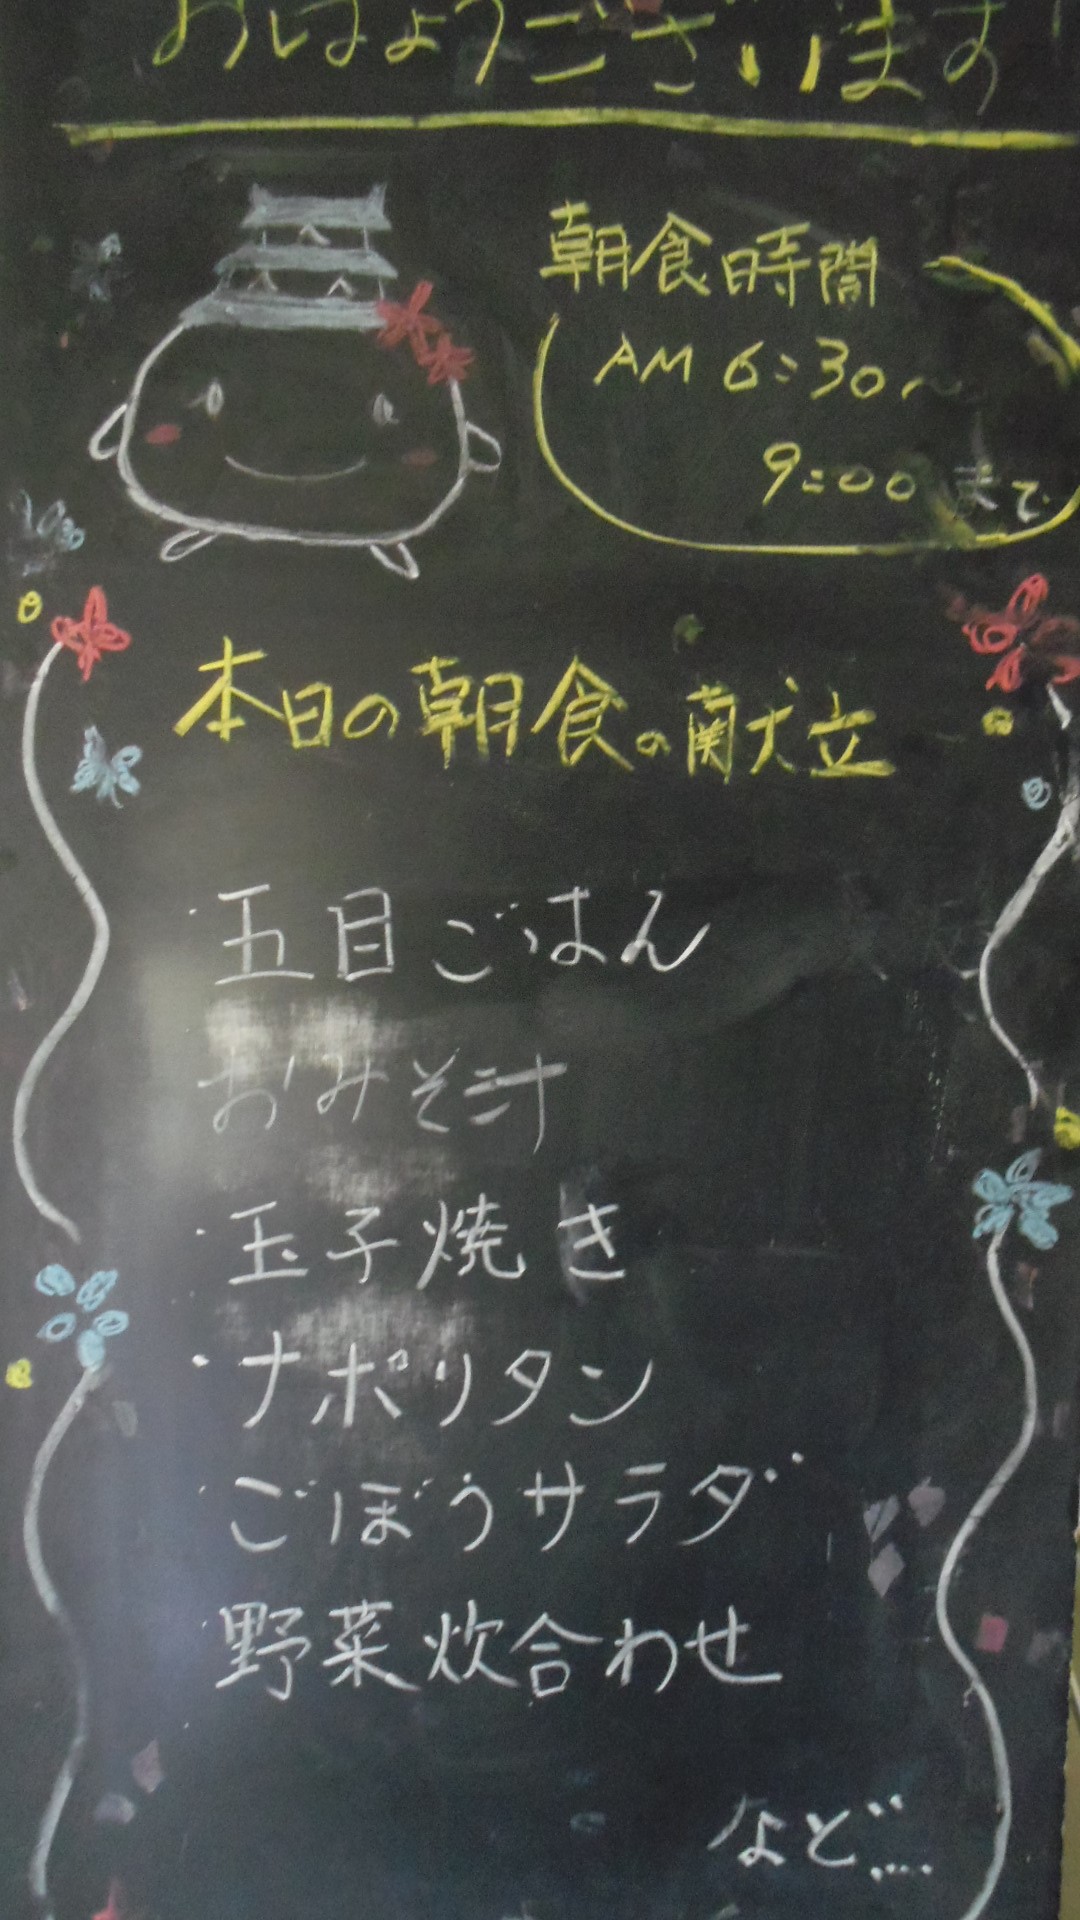 おはようございます!
朝食時間
AM 6:30~
9:00 まで
本日の朝食の献立
・五目ごはん
おみそ汁
・玉子焼き
・ナポリタン
・ごぼうサラダ
・野菜炊合わせ
など....